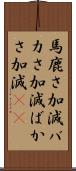 馬鹿さ加減バ
カさ加減ばか
さ加減((